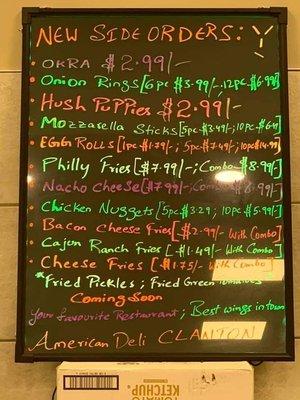 NEW SIDE ORDERS:
OKRA $2.99/-
Onion Rings [6pc $3.99/-.12pc.$6.99]
Hush Puppies $2.99/-
Mozzarella Sticks [5pc.$3.49/-; 10pc.$6.49]
EGG ROLLS [1pc $1.79/-; 5pc $7.49/-; 10pc $14.99]
Philly Fries [$7.99/-; Combo $8.99]
Nacho Cheese [$7.99/-; Combo $8.99]
Chicken Nuggets [5pc $3.29; 10pc $5.99/-]
Bacon Cheese Fries [$2.99/- With Combo]
Cajun Ranch Fries [$1.49/- With Combo]
Cheese Fries [$1.75/- With Combo]
*Fried Pickles; Fried Green Tomatoes
Coming Soon
Your favourite Restaurant; Best wings in town
American Deli CLANTON
TOMATO
KETCHUP